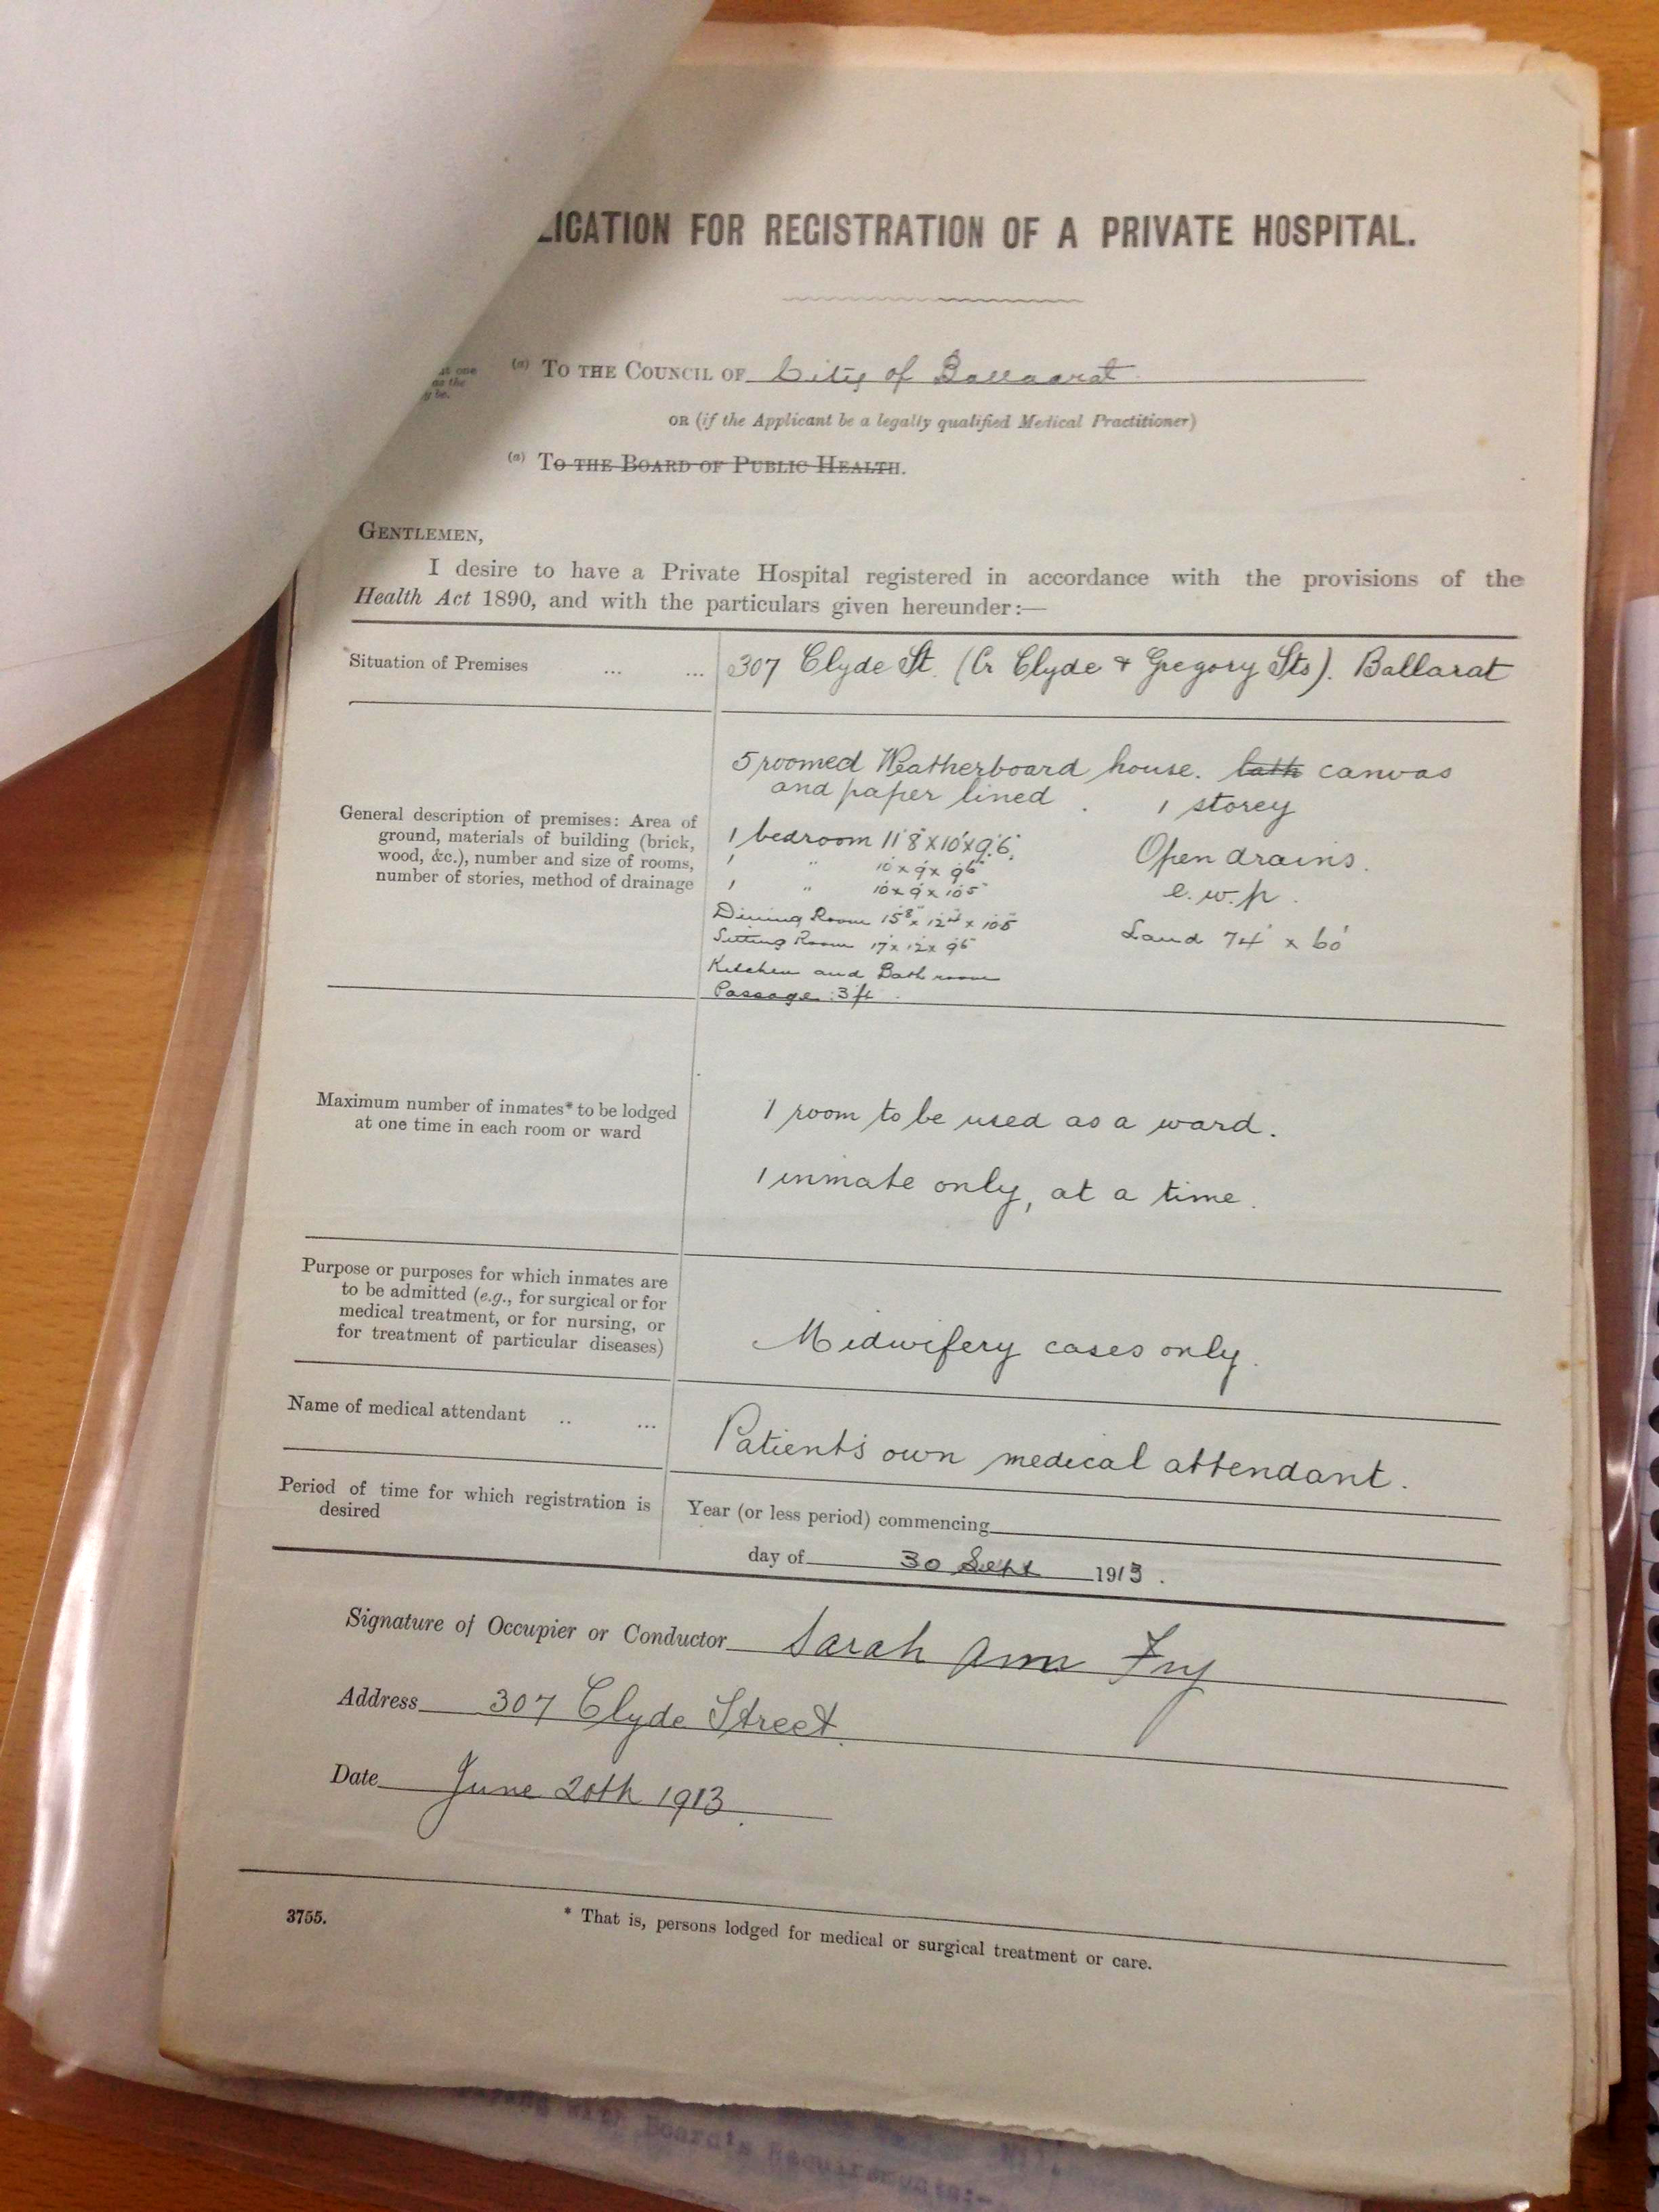 LICATION FOR REGISTRATION OF A PRIVATE HOSPITAL.
(a) TO THE COUNCIL OF City of Ballaarat
OR (if the Applicant be a legally qualified Medical Practitioner)
(a) TO THE BOARD OF PUBLIC HEALTH.
at one
as the
y be.
GENTLEMEN,
I desire to have a Private Hospital registered in accordance with the provisions of the
Health Act 1890, and with the particulars given hereunder:—
Situation of Premises ... ... 307 Clyde St. (Cr Clyde & Gregory Sts). Ballarat
General description of premises: Area of
ground, materials of building (brick,
wood, &c.), number and size of rooms,
number of stories, method of drainage
5 roomed Weatherboard house. lath canvas
and paper lined. 1 storey
1 bedroom 11'8"x10'x9'6". Open drains.
1 " 10'x9'x9'6"
1 " 10'x9'x10'5" e.w.p.
Dining Room 15'8"x12'4"x10'5"
Land 74' x 60'
Sitting Room 17'x12'x9'6"
Kitchen and Bath room
Passage 3 ft.
Maximum number of inmates* to be lodged
at one time in each room or ward
1 room to be used as a ward.
1 inmate only, at a time.
Purpose or purposes for which inmates are
to be admitted (e.g., for surgical or for
medical treatment, or for nursing, or
for treatment of particular diseases)
Midwifery cases only.
Name of medical attendant .. ... Patient's own medical attendant.
Period of time for which registration is
desired
Year (or less period) commencing
day of 30 Sept 1913.
Signature of Occupier or Conductor Sarah Ann Fry
Address 307 Clyde Street.
Date June 20th 1913.
3755.
* That is, persons lodged for medical or surgical treatment or care.
with Board's Requirements:-